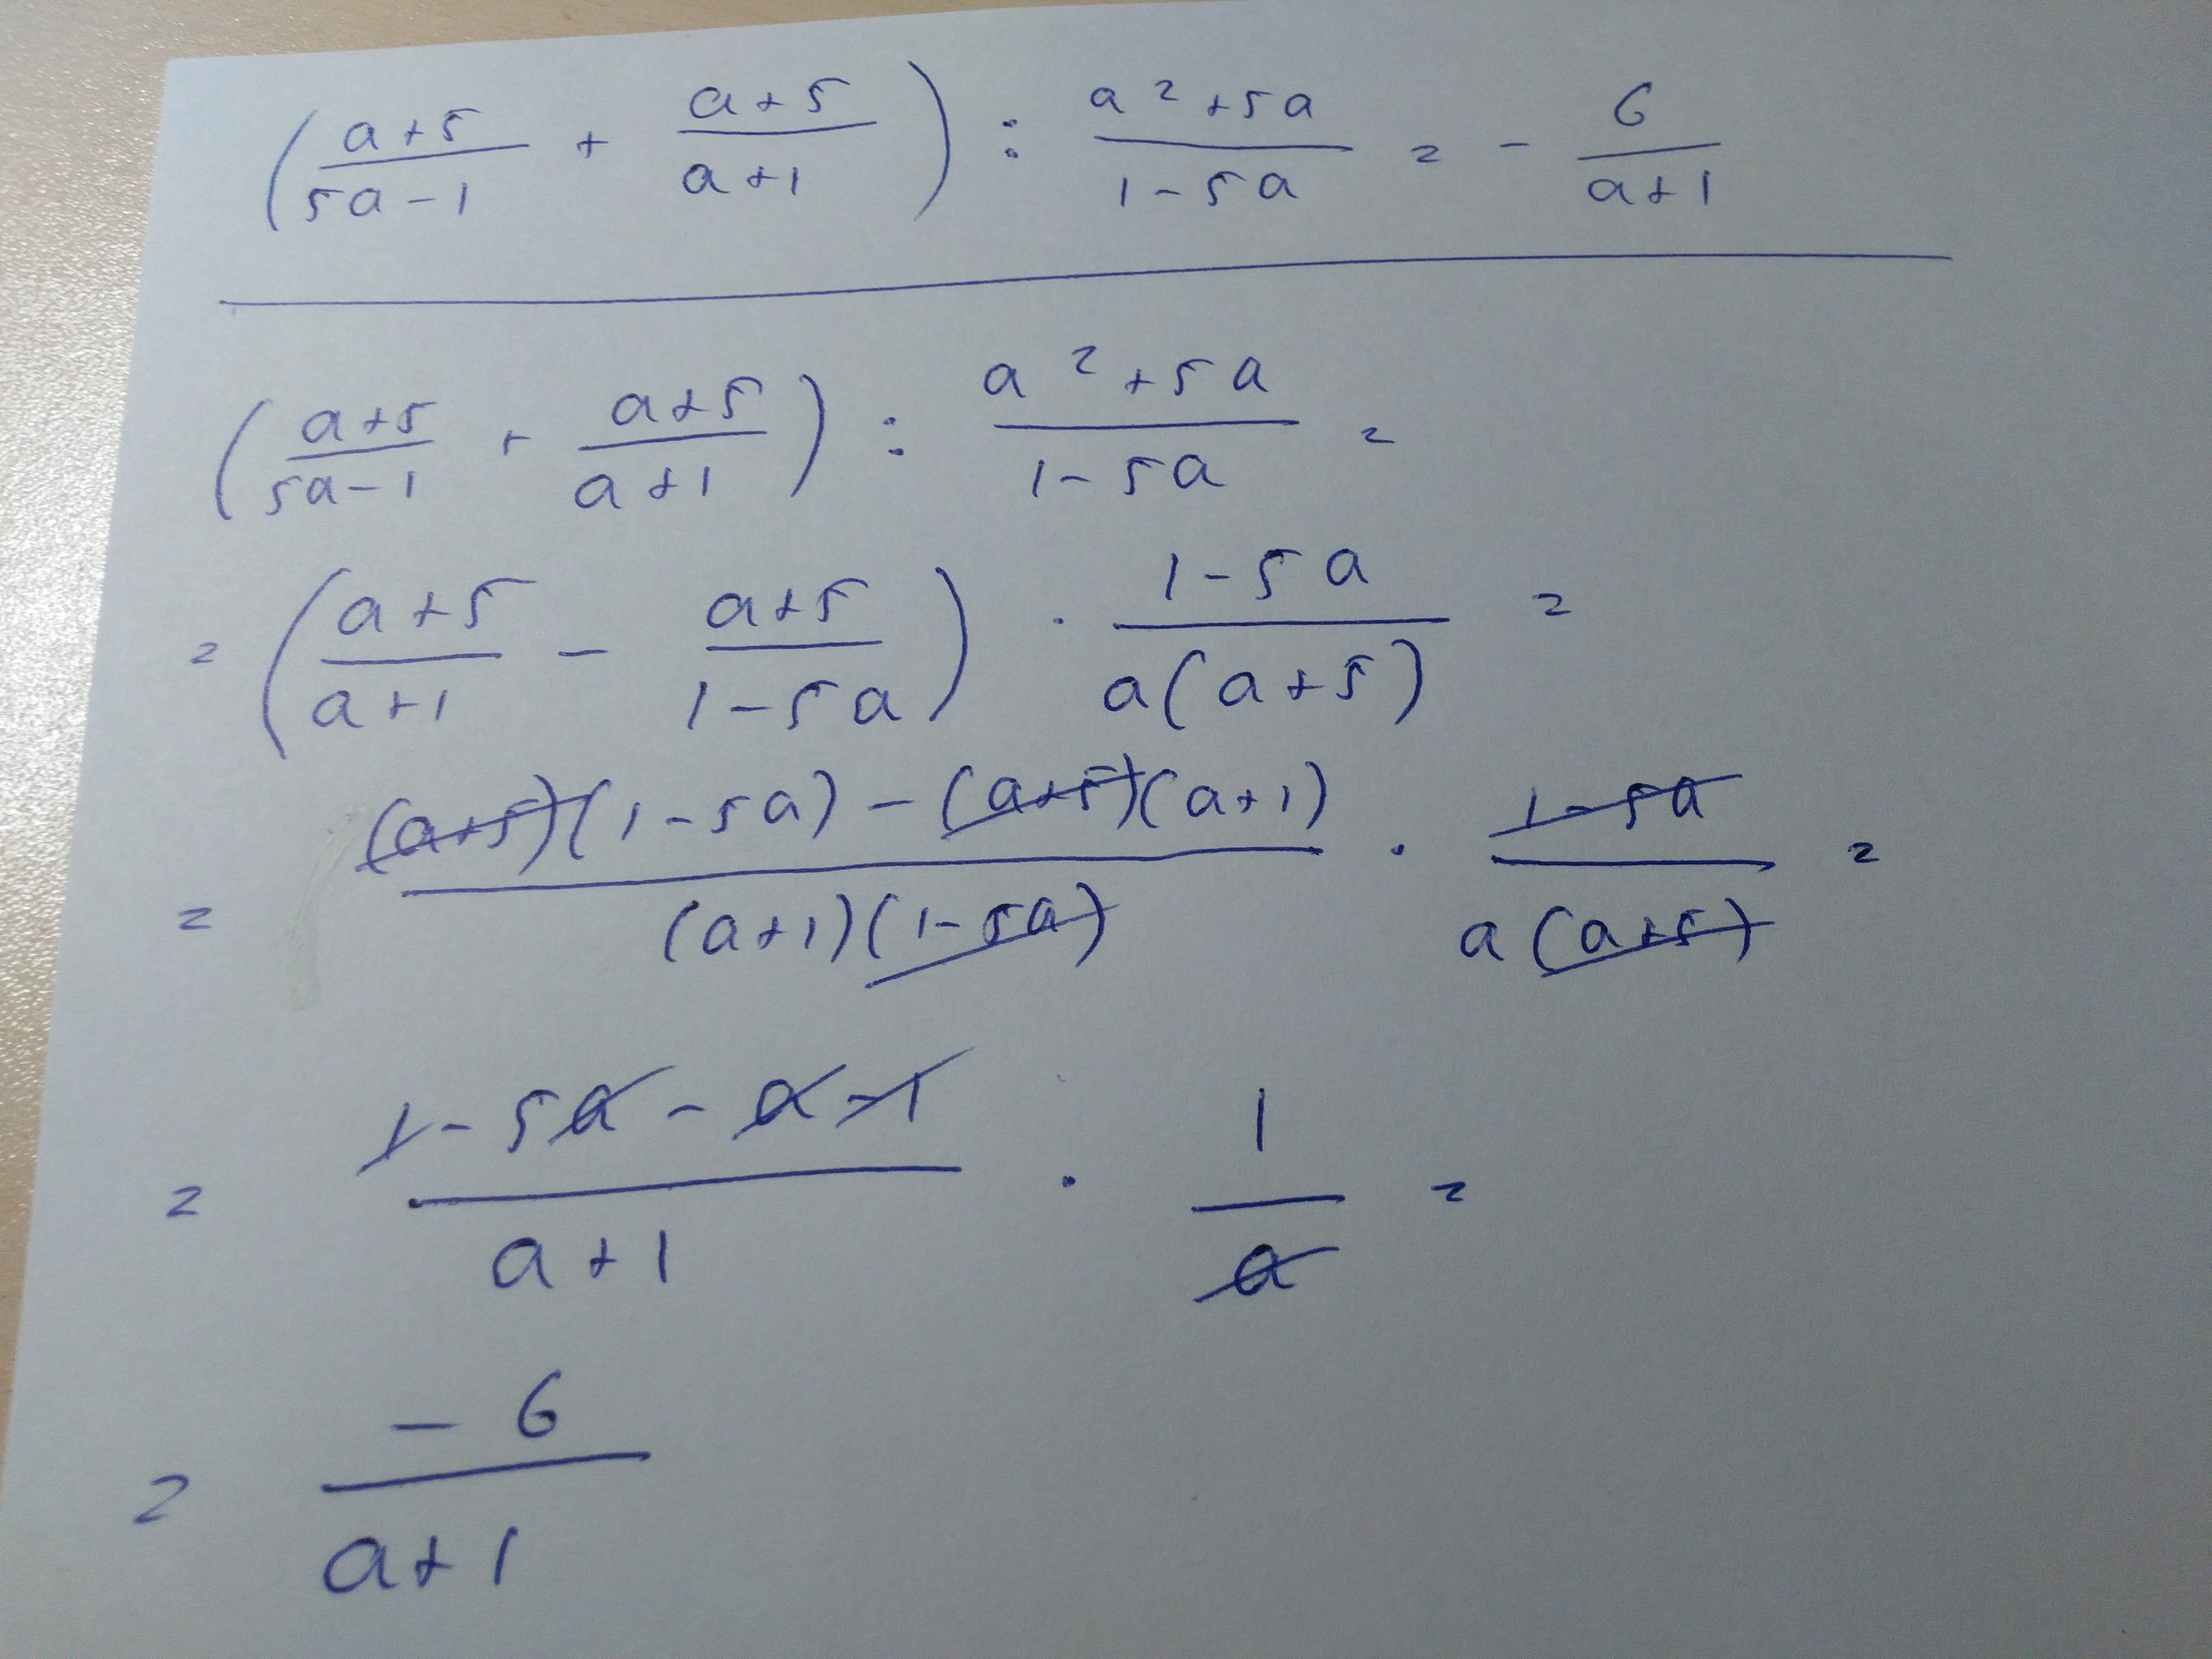 (a+5/5a-1 + a+5/a+1) : a²+5a/1-5a = - 6/a+1
(a+5/5a-1 + a+5/a+1) : a²+5a/1-5a =
= (a+5/a+1 - a+5/1-5a) · 1-5a/a(a+5) =
= (a+5)(1-5a)-(a+5)(a+1)/(a+1)(1-5a) · 1-5a/a(a+5) =
= 1-5a-a-1/a+1 · 1/a =
= -6/a+1